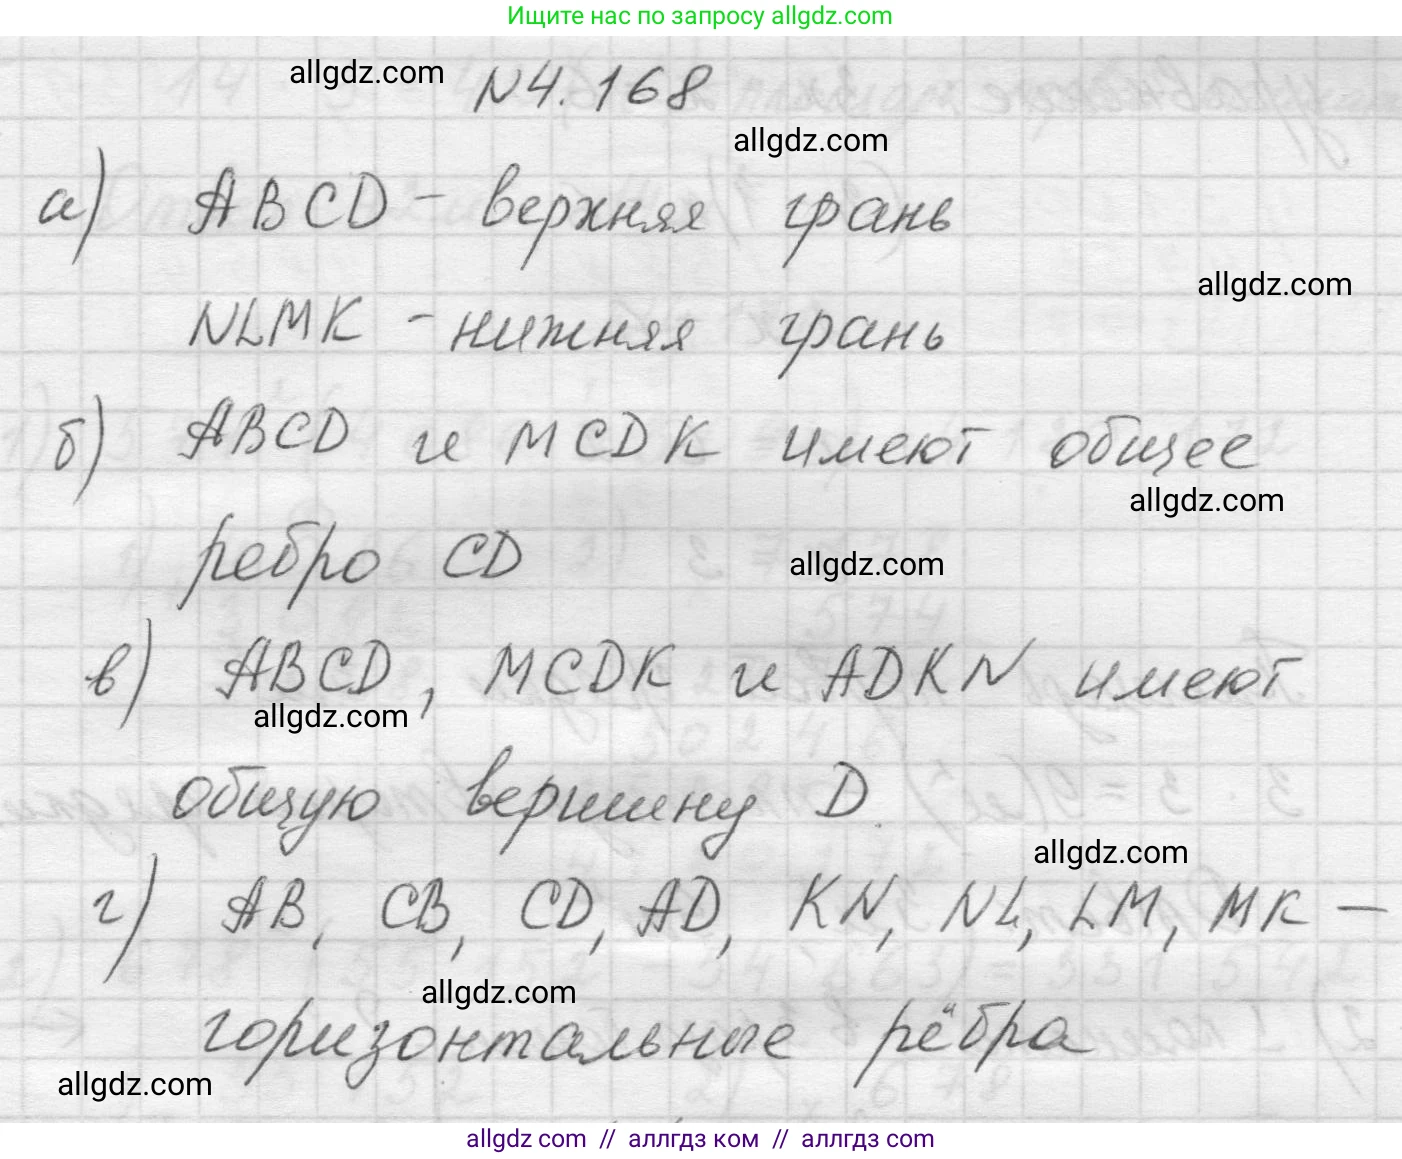 Ищите нас по запросу allgdz.com
allgdz.com
N4.168
allgdz.com
а) ABCD - верхняя грань
allgdz.com
NLMK - нижняя грань
б) ABCD и MCDK имеют общее
allgdz.com
ребро CD
allgdz.com
в) ABCD, MCDK и ADKN имеют
allgdz.com
общую вершину D.
allgdz.com
г) AB, CB, CD, AD, KN, NL, LM, MK —
allgdz.com
горизонтальные рёбра
allgdz.com
allgdz com // аллгдз ком // аллгдз com